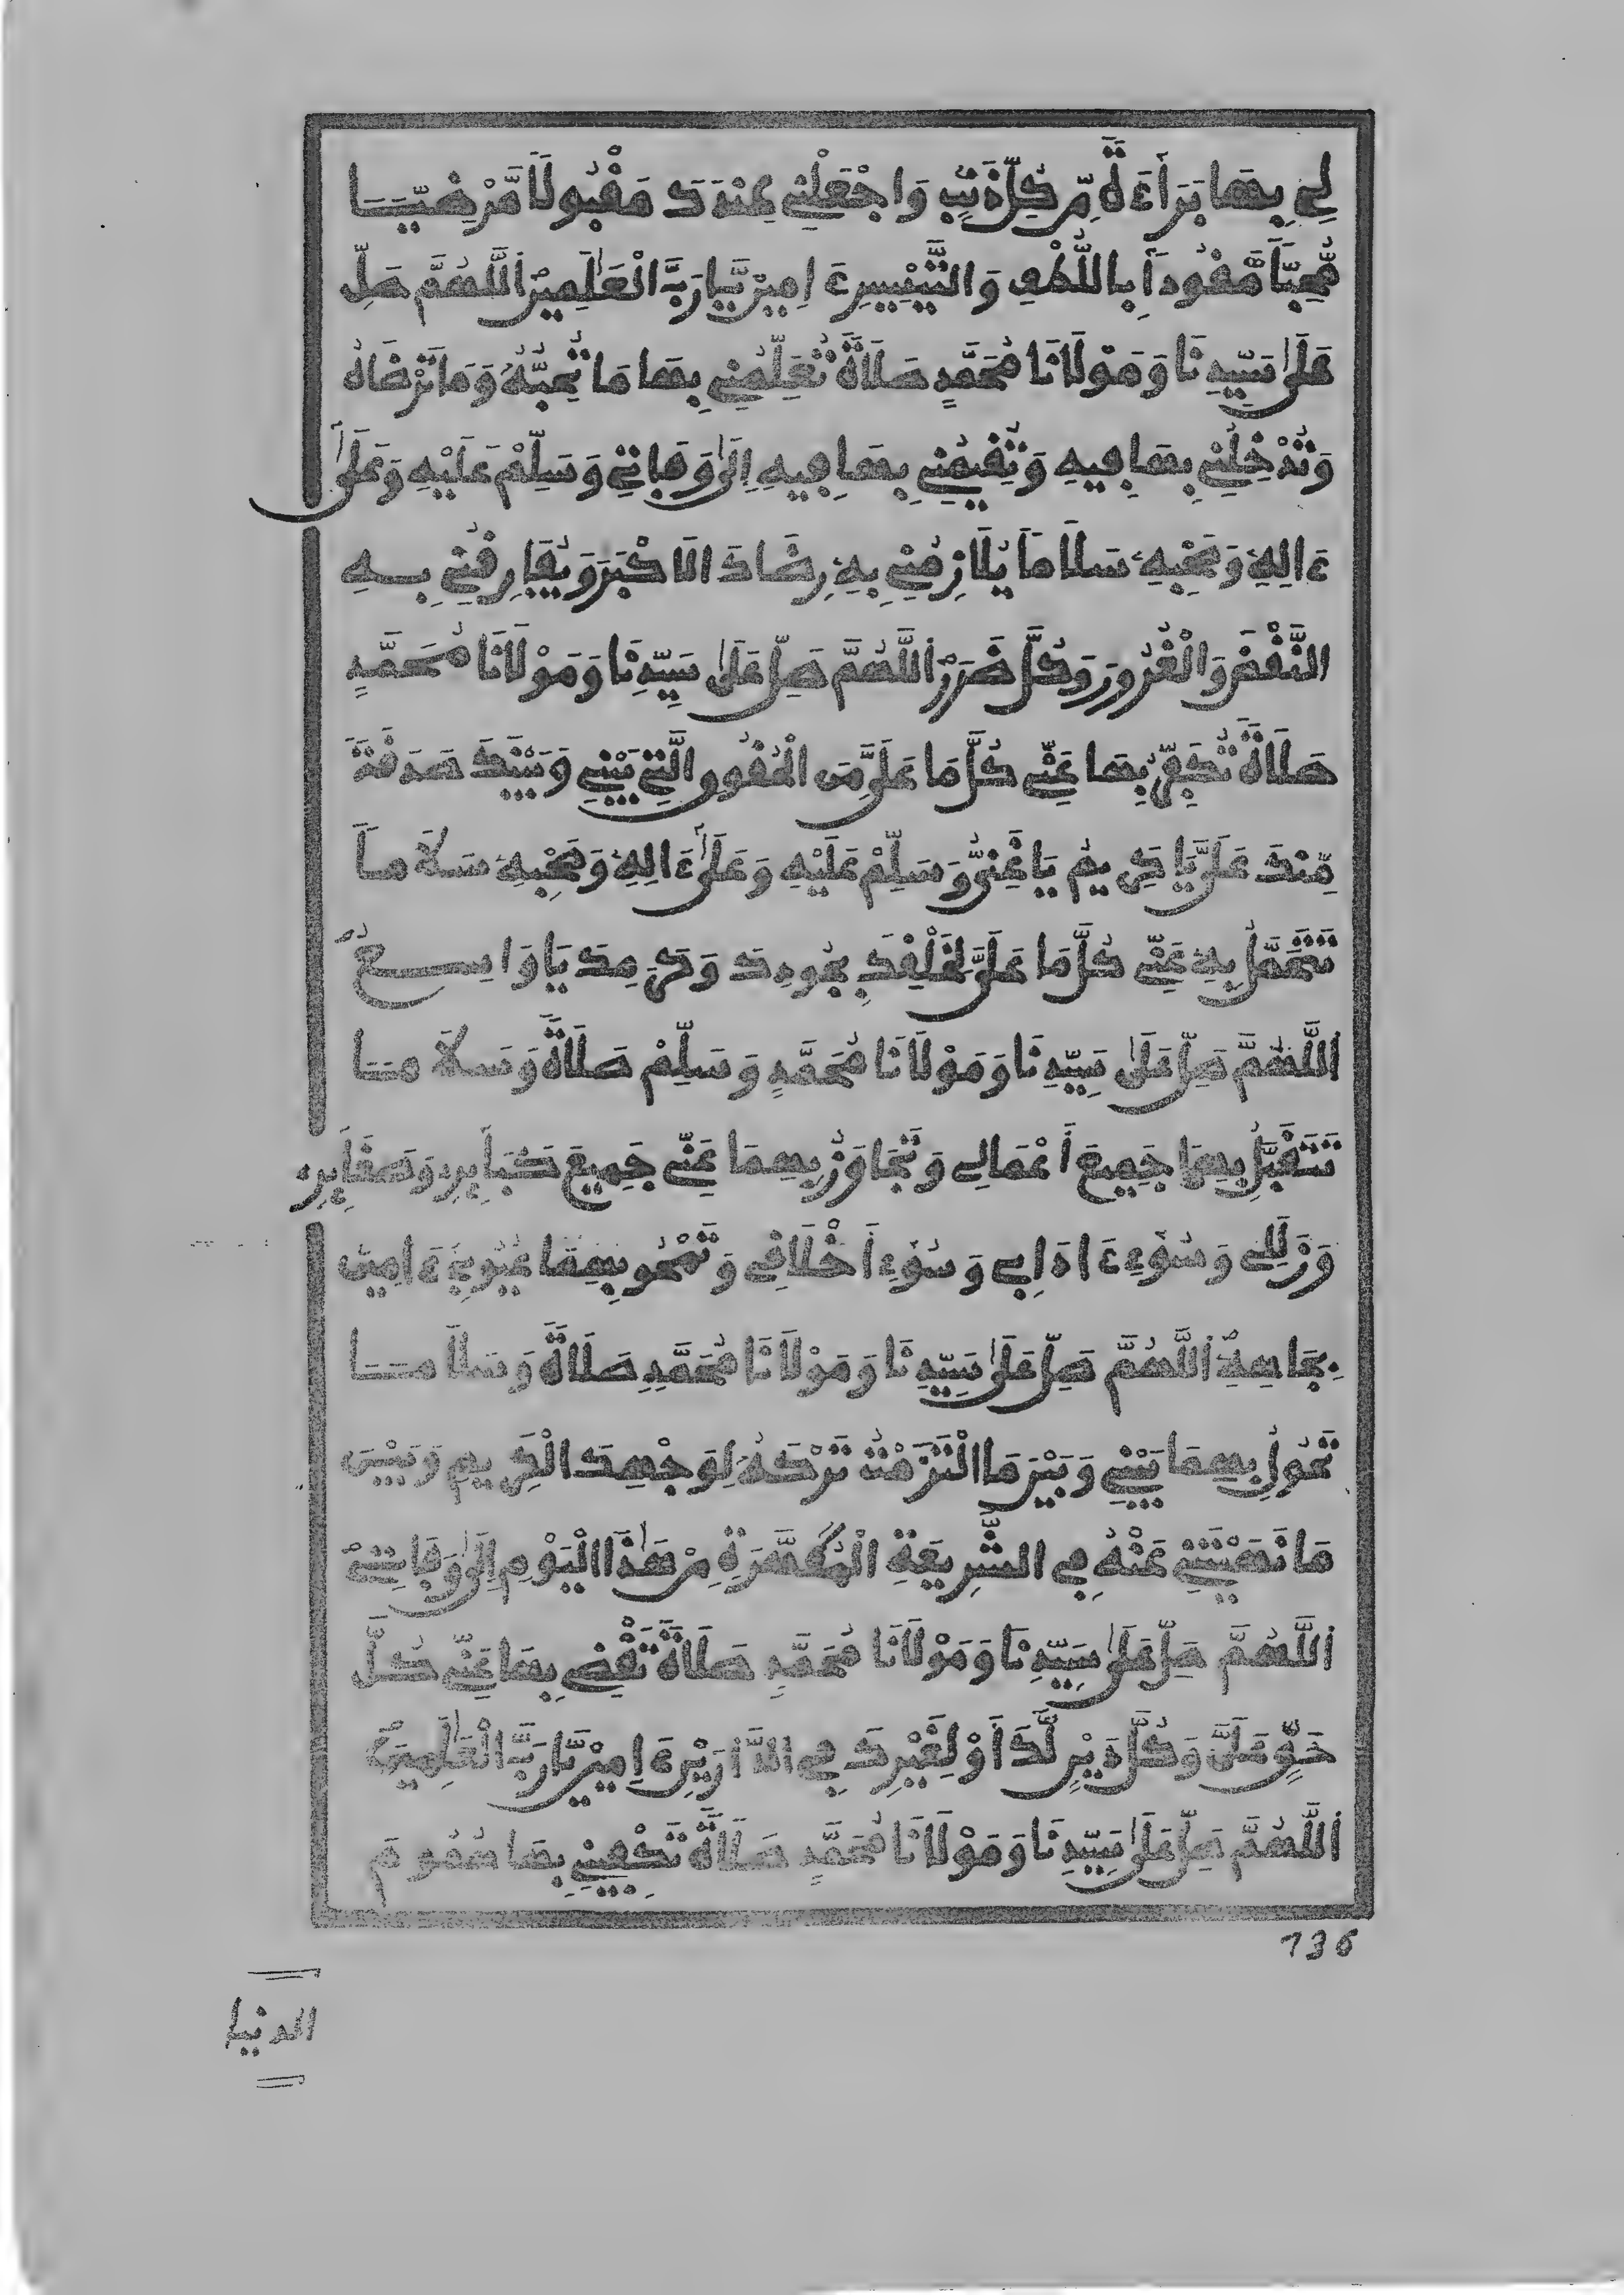 لِي بِهَا بَرَآءَةً مِّن كُلِّ ذَنْبٍ وَاجْعَلْنِي عِندَكَ مَقْبُولًا مَّرْضِيًّا
مُّحِبًّا مَّقُوداً بِاللُّطْفِ وَالتَّيْسِيرِ ءَامِين يَّا رَبَّ الْعَٰلَمِينَ اَللَّهُمَّ صَلِّ
عَلَىٰ سَيِّدِنَا وَمَوْلَانَا مُحَمَّدٍ صَلَاةً تُعَلِّمُنِي بِهَا مَا تُحِبُّهُ وَمَا تَرْضَاهُ
وَتُدْخِلُنِي بِهَا فِيهِ وَتُقِيمُنِي بِهَا فِيهِ إِلَىٰ وَفَاتِي وَسَلِّمْ عَلَيْهِ وَعَلَىٰٓ
ءَالِهِ وَصَحْبِهِ سَلَاماً يُلَازِمُنِي بِهِ رِضَاكَ الَاكْبَرُ وَيُفَارِقُنِي بِهِ
النَّقْضُ وَالْغُرُورُ وَكُلُّ ضَرَرٍ اَللَّهُمَّ صَلِّ عَلَىٰ سَيِّدِنَا وَمَوْلَانَا مُحَمَّدٍ
صَلَاةً تُكَفِّرُ بِهَا عَنِّي كُلَّ مَا عَلَيَّ مِنَ الْحُقُوقِ الَّتِي بَيْنِي وَبَيْنَكَ صَدَقَةً
مِّنكَ عَلَيَّ يَا كَرِيمُ يَا غَنِيُّ وَسَلِّمْ عَلَيْهِ وَعَلَىٰٓ ءَالِهِ وَصَحْبِهِ سَلَاماً
تَتَحَمَّلُ بِهِ عَنِّي كُلَّ مَا عَلَيَّ لِخَلْقِكَ بِجُودِكَ وَكَرَمِكَ يَا وَاسِعُ
اَللَّهُمَّ صَلِّ عَلَىٰ سَيِّدِنَا وَمَوْلَانَا مُحَمَّدٍ وَسَلِّمْ صَلَاةً وَسَلَاماً
تَتَقَبَّلُ بِهِمَا جَمِيعَ أَعْمَالِي وَتَجَاوَزُ بِهِمَا عَنِّي جَمِيعَ كَبَآئِرِهِ وَصَغَآئِرِهِ
وَزَلَلِي وَسُوٓءِ ءَادَابِي وَسُوٓءِ أَخْلَاقِي وَتَمْحُو بِهِمَا عُيُوبِي ءَامِين
بِجَاهِهِ اَللَّهُمَّ صَلِّ عَلَىٰ سَيِّدِنَا وَمَوْلَانَا مُحَمَّدٍ صَلَاةً وَسَلَاماً
تَحُولُ بِهِمَا بَيْنِي وَبَيْنَ مَا الْتَزَمْتُ تَرْكَهُ لِوَجْهِكَ الْكَرِيمِ وَبَيْنَ
مَا نَهَيْتَنِي عَنْهُ فِي الشَّرِيعَةِ الْمُطَهَّرَةِ مِنْ هَٰذَا الْيَوْمِ إِلَىٰ وَفَاتِي
اَللَّهُمَّ صَلِّ عَلَىٰ سَيِّدِنَا وَمَوْلَانَا مُحَمَّدٍ صَلَاةً تَقْضِي بِهَا عَنِّي كُلَّ
حَقٍّ عَلَيَّ وَكُلَّ دَيْنٍ لَّكَ أَوْ لِغَيْرِكَ فِي الدَّارَيْنِ ءَامِين يَّا رَبَّ الْعَٰلَمِينَ
اَللَّهُمَّ صَلِّ عَلَىٰ سَيِّدِنَا وَمَوْلَانَا مُحَمَّدٍ صَلَاةً تَكْفِينِي بِهَا هُمُومَ
136
الدنيا